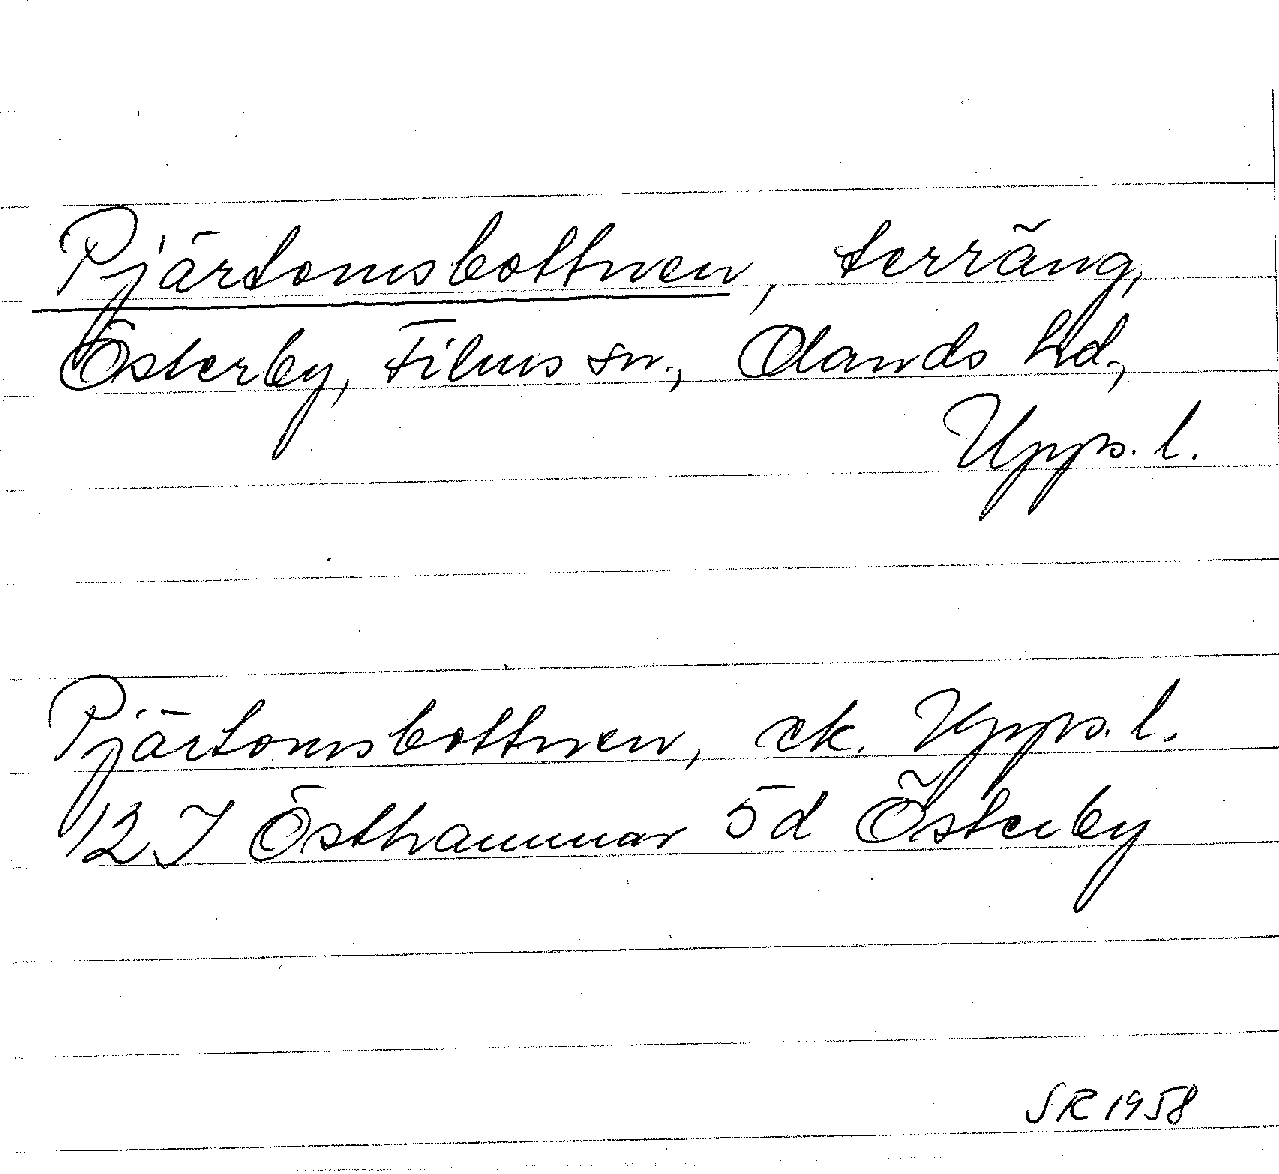 Pjärtomsbottnen, terräng,
Österby, Films sn., Olands hd.,
Upps. l.
Pjärtomsbottnen, ek. Upps. l.
12 I Östhammar 5d Österby
SR 1958